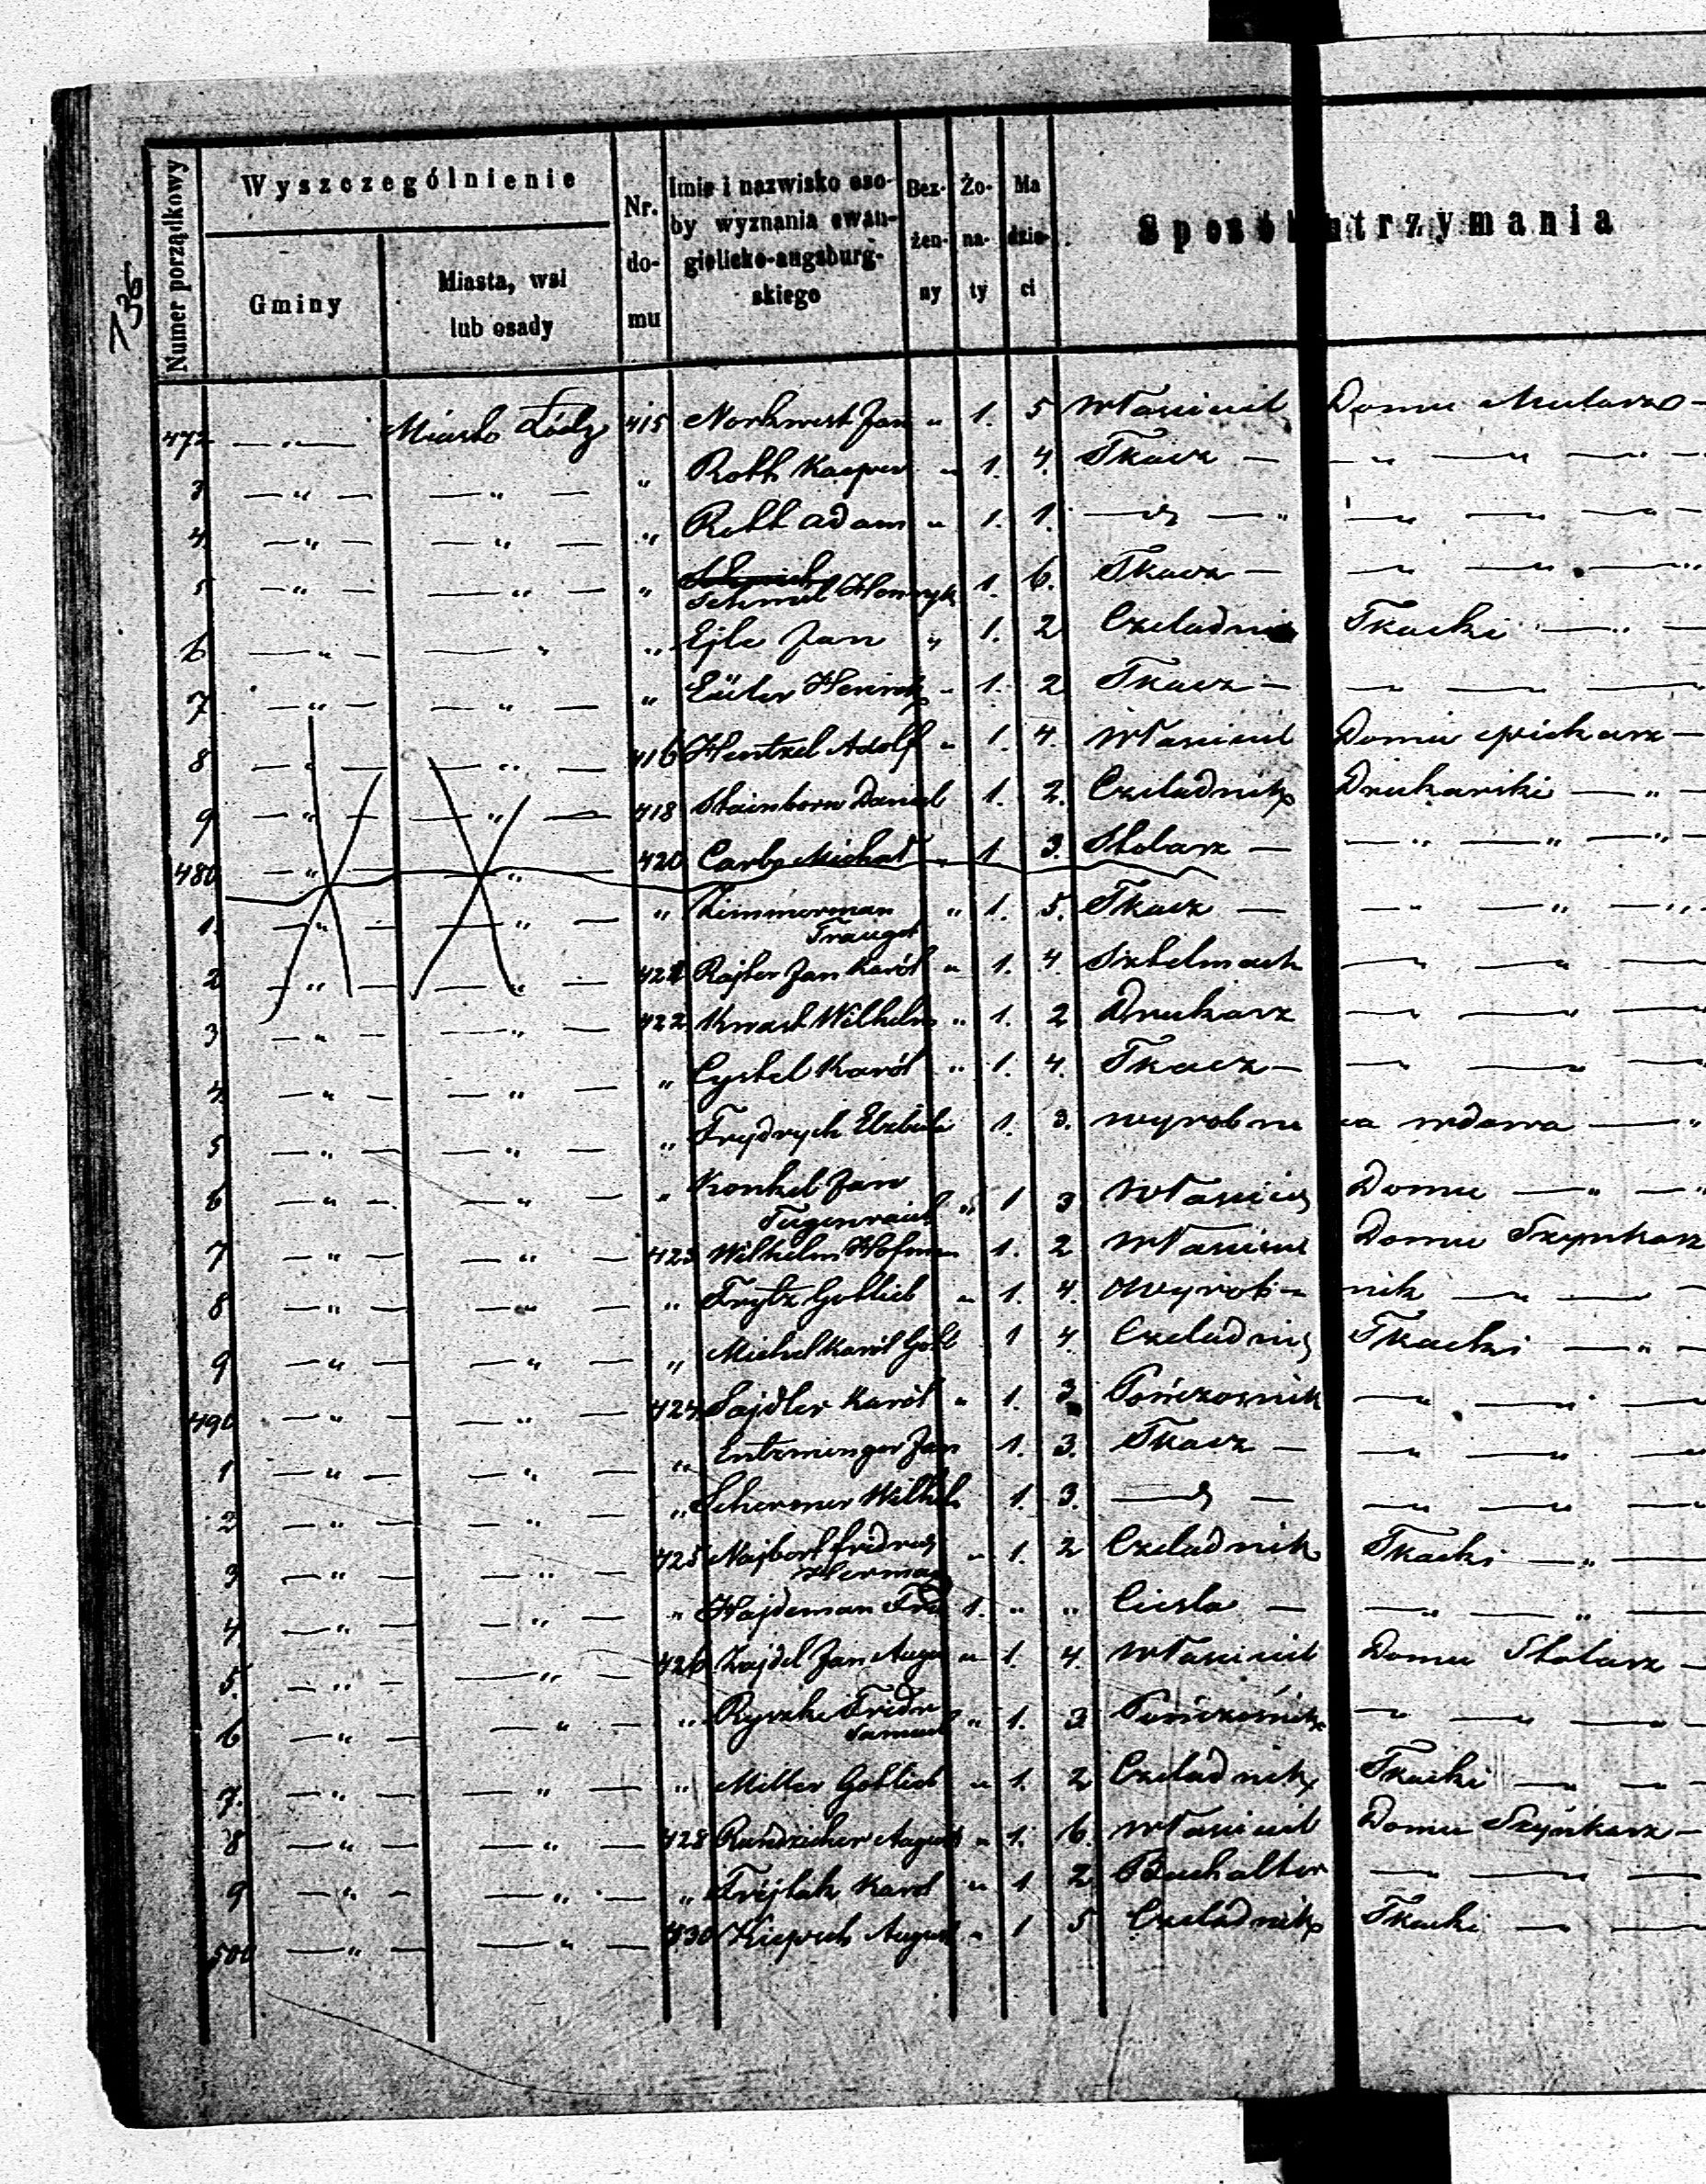 136
Numer porządkowy
Wyszczególnienie
Gminy
Miasta, wsi lub osady
Nr. domu
Imie i nazwisko osoby wyznania ewangielicko-augsburgskiego
Bezżenny
Żonaty
Ma dzieci
Sposób utrzymania
472 — " — Miasto Łódź 415 Norkwest Jan " 1. 5 Właściciel Domu Mularz —
3 — " — — " — " Roth Kasper " 1. 4. Tkacz — — " —
4 — " — — " — " Roth Adam " 1. 1. — " —
5 — " — — " — " Henryk 1. 6. Tkacz — — " —
6 — " — — " — " Ejle Jan " 1. 2 Czeladnik Tkacki — " —
7 — " — — " — " " 1. 2 Tkacz — — " —
8 — " — — " — 416 Hentzel Adolf " 1. 4. Właściciel Domu piekarz —
9 — " — — " — 418 Stainborn Daniel 1. 2. Czeladnik Drukarski — " —
480 — " — — " — 420 Carbe Michał " 1 3. Stolarz — — " —
1. — " — — " — " Zimmerman Traugot " 1. 5. Tkacz — — " —
2 — " — — " — 421 Rajter Jan Karól " 1. 4. Sztelmach — " —
3 — " — — " — 422 Kwast Wilhelm " 1. 2 Drukarz — " —
4. — " — — " — " Cystel Karól " 1. 4. Tkacz — — " —
5 — " — — " — " Frydrych Elzbieta 1. 3. wyrobnica wdowa — "
6 — " — — " — " Konkel Jan " 1 3 Właściciel Domu — " — "
7 — " — — " — 423 Wilhelm Hofman 1. 2 Właściciel Domu Szynkarz
8 — " — — " — " Frytz Gotlieb " 1. 4. Wyrobnik — " —
9 — " — — " — " Michel Karól Gotl 1 4. Czeladnik Tkacki — " —
490 — " — — " — 424 Sajdler Karól " 1. 3 Pończosznik — " —
1 — " — — " — " Entzminger Jan 1. 3. Tkacz — — " —
2 — " — — " — " Schermer Wilhelm 1. 3. — " —
3 — " — — " — 425 Najbort Fridrich Herman " 1. 2 Czeladnik Tkacki — " —
4. — " — — " — " Hajdeman Frd 1. " " Ciesla — — " —
5. — " — — " — 426 Zajdel Jan Augu " 1. 4. Właściciel Domu Stolarz —
6 — " — — " — " Ryszke Fridr Samuel " 1. 3 Pończosznik — " —
7. — " — — " — " Miller Gotlieb " 1. 2 Czeladnik Tkacki — " —
8 — " — — " — 428 Rundzieher August " 1. 6. Właściciel Domu Szynkarz —
9 — " — — " — " Frejlak Karol " 1 2 Buchalter — " —
500 — " — — " — 430 August " 1 5 Czeladnik Tkacki — " —